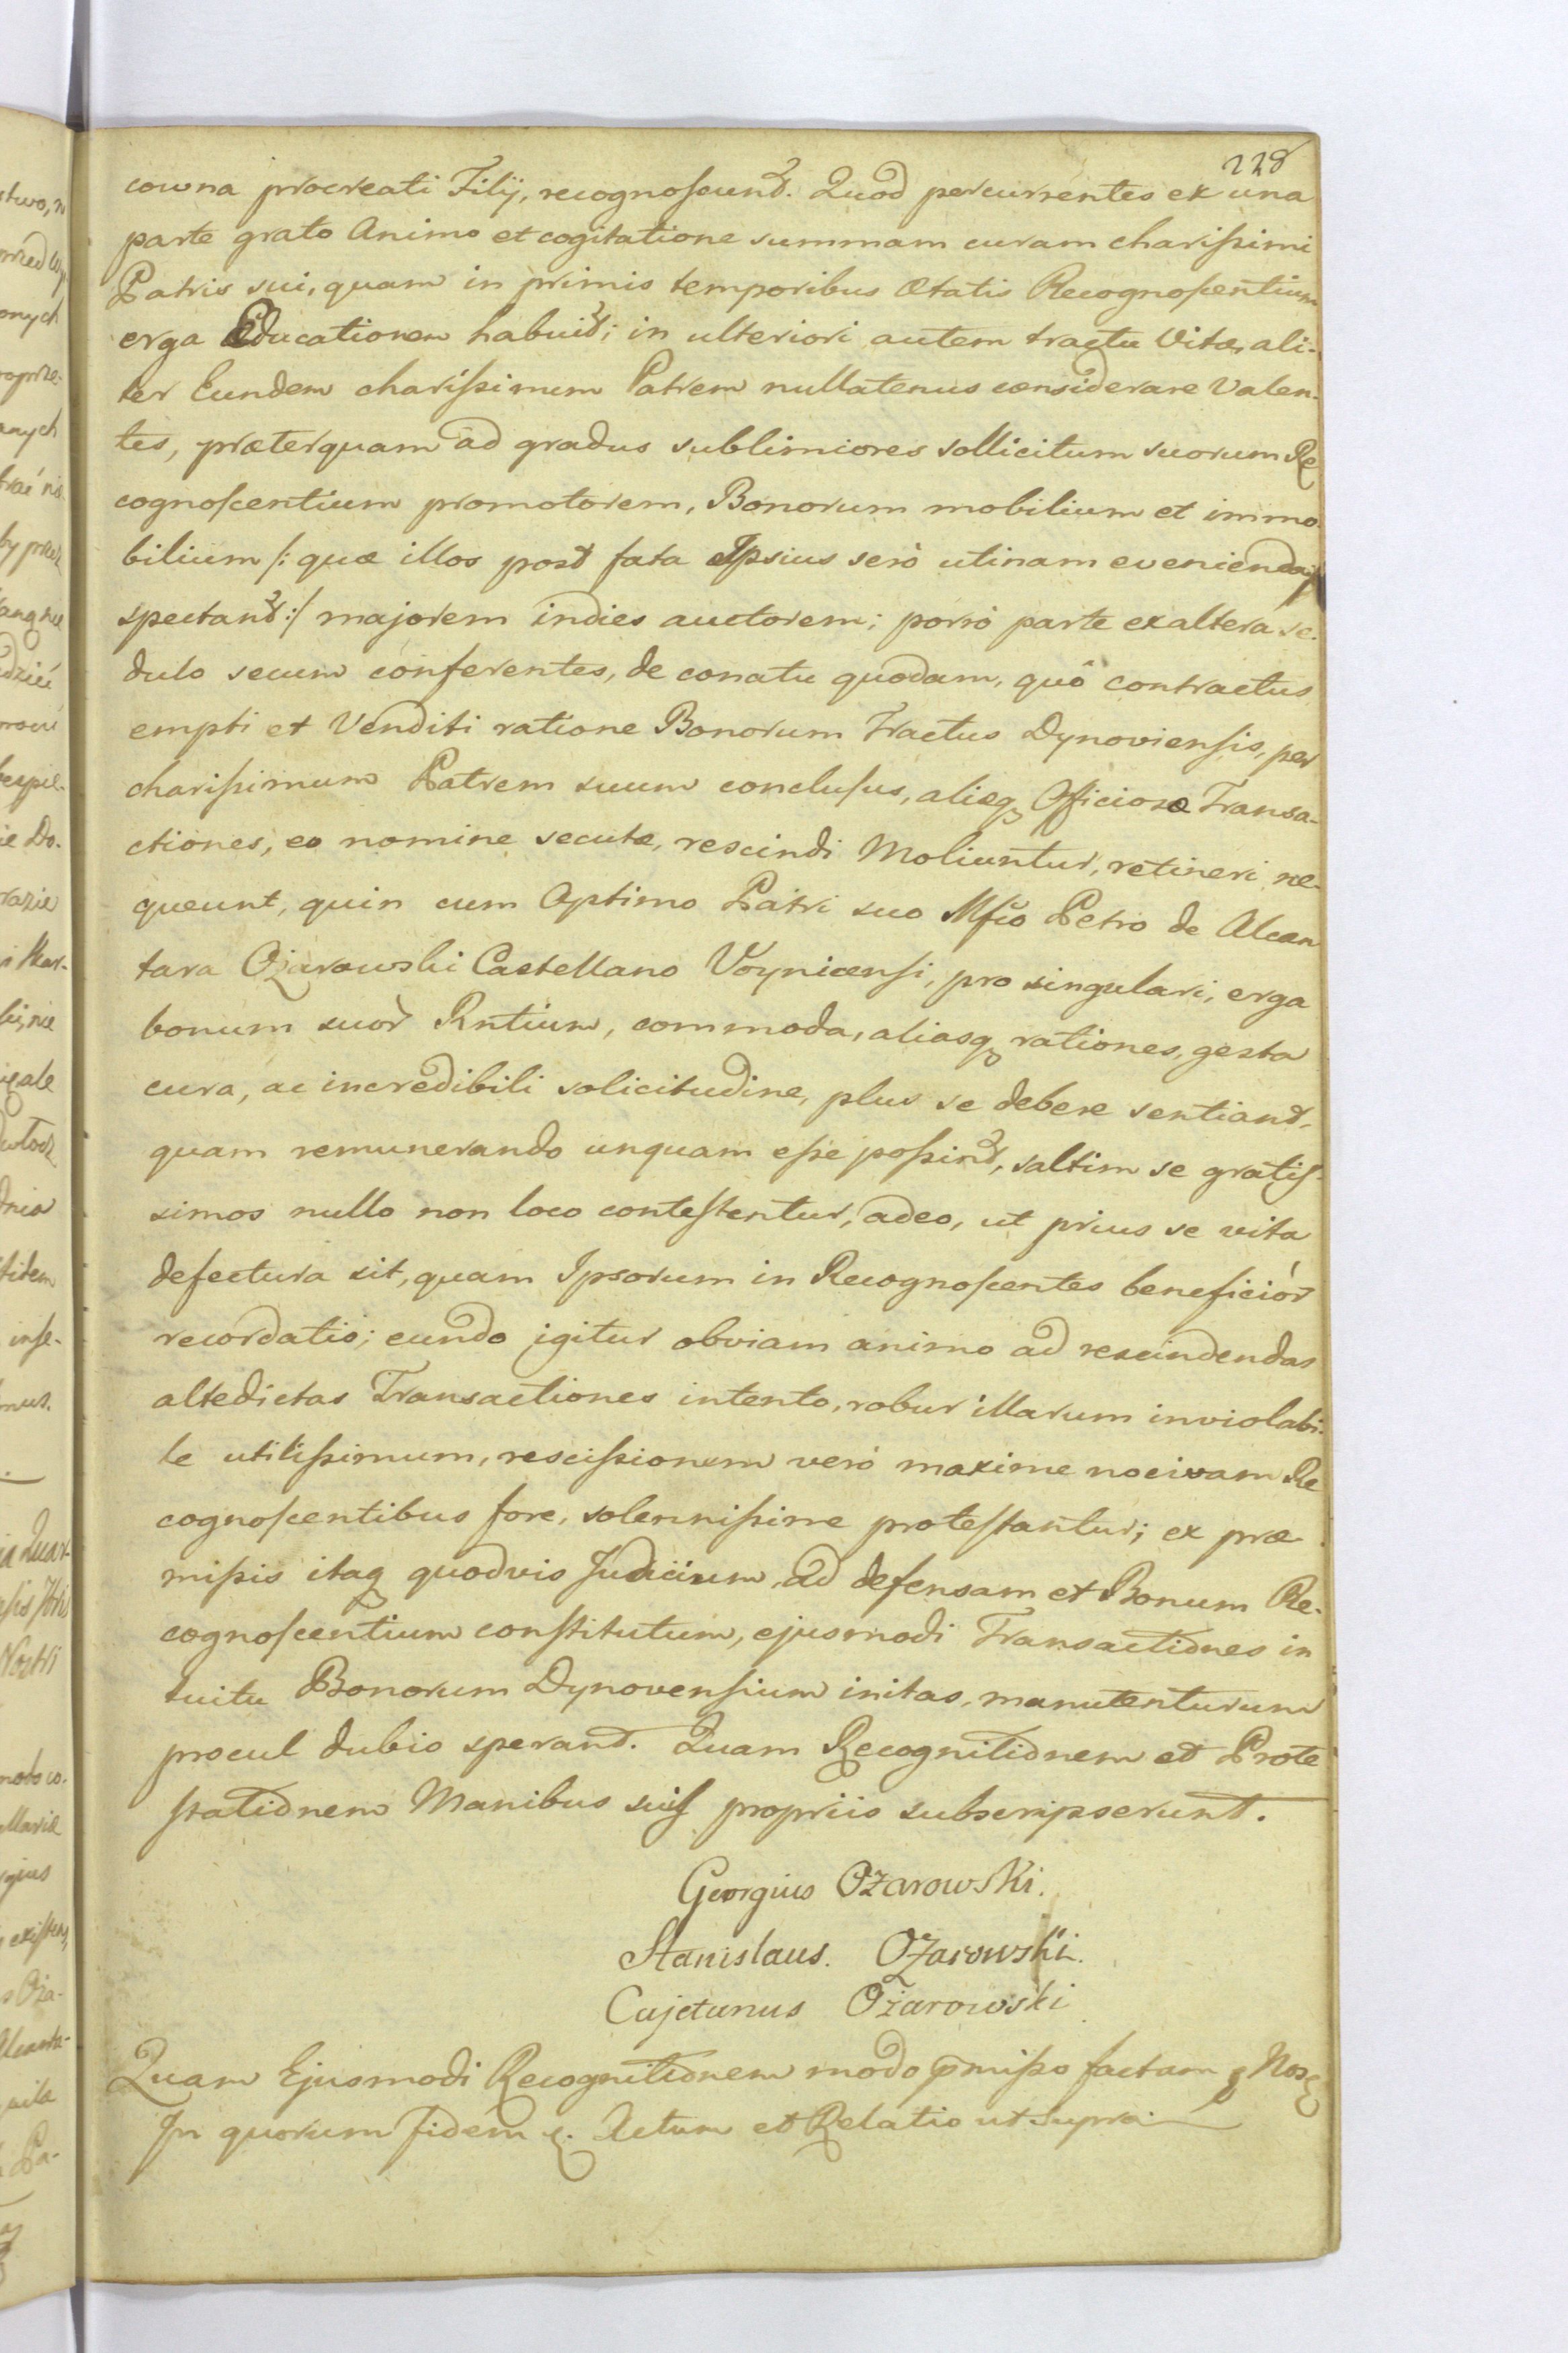 228
cowna procreati Filij, recognoscunt. Quod percurrentes ex una
parte grato Animo et cogitatione summam curam charissimi
Patris sui, quam in primis temporibus Ætatis Recognoscentium
erga Educationem habuit; in ulteriori autem tractu Vitæ, ali-
ter Eundem charissimum Patrem nullatenus considerare Valen-
tes, præterquam ad gradus sublimiores sollicitum suorum Re
cognoscentium promotorem, Bonorum mobilium et immo
bilium /: quæ illos post fata Ipsius serò utinam evenienda,
spectant :/ majorem indies auctorem; porrò parte ex altera se-
dulo secum conferentes, de conatu quodam, quô contractus
empti et Venditi ratione Bonorum Tractus Dynoviensis, per
charissimum Patrem suum conclusus, aliæq Officiosæ Transa-
ctiones, eo nomine secutæ, rescindi Moliuntur, retineri ne-
queunt, quin cum Optimo Patri suo Mfico Petro de Alcan
tara Ożarowski Castellano Voynicensi, pro singulari, erga
bonum suor Rntium, commoda, aliasq rationes, gesta
cura, ac incredibili solicitudine, plus se debere sentiant,
quam remunerando unquam esse possint, saltim se gratis-
simos nullo non loco contestentur, adeo, ut prius se vita
defectura sit, quam Ipsorum in Recognoscentes beneficiór
recordatio; eundo igitur obviam animo ad rescindendas
altedictas Transactiones intento, robur illarum inviolabi-
le utilissimum, rescissionem verò maxime nocivam Re
cognoscentibus fore, solennissime protestantur; ex præ
missis itaq quodvis Judicium, ad defensam et Bonum Re-
cognoscentium constitutum, ejusmodi Transactiones in
tuitu Bonorum Dynovensium initas, manutenturum
procul dubio sperant. Quam Recognitionem et Prote
stationem Manibus suis propriis subscripserunt.
Georgius Ożarowski.
Stanislaus. Ożarowski.
Cajetanus Ożarowski
Quam Ejusmodi Recognitionem modo pmisso factam p Nos
In quorum fidem &. Actum et Relatio ut supra